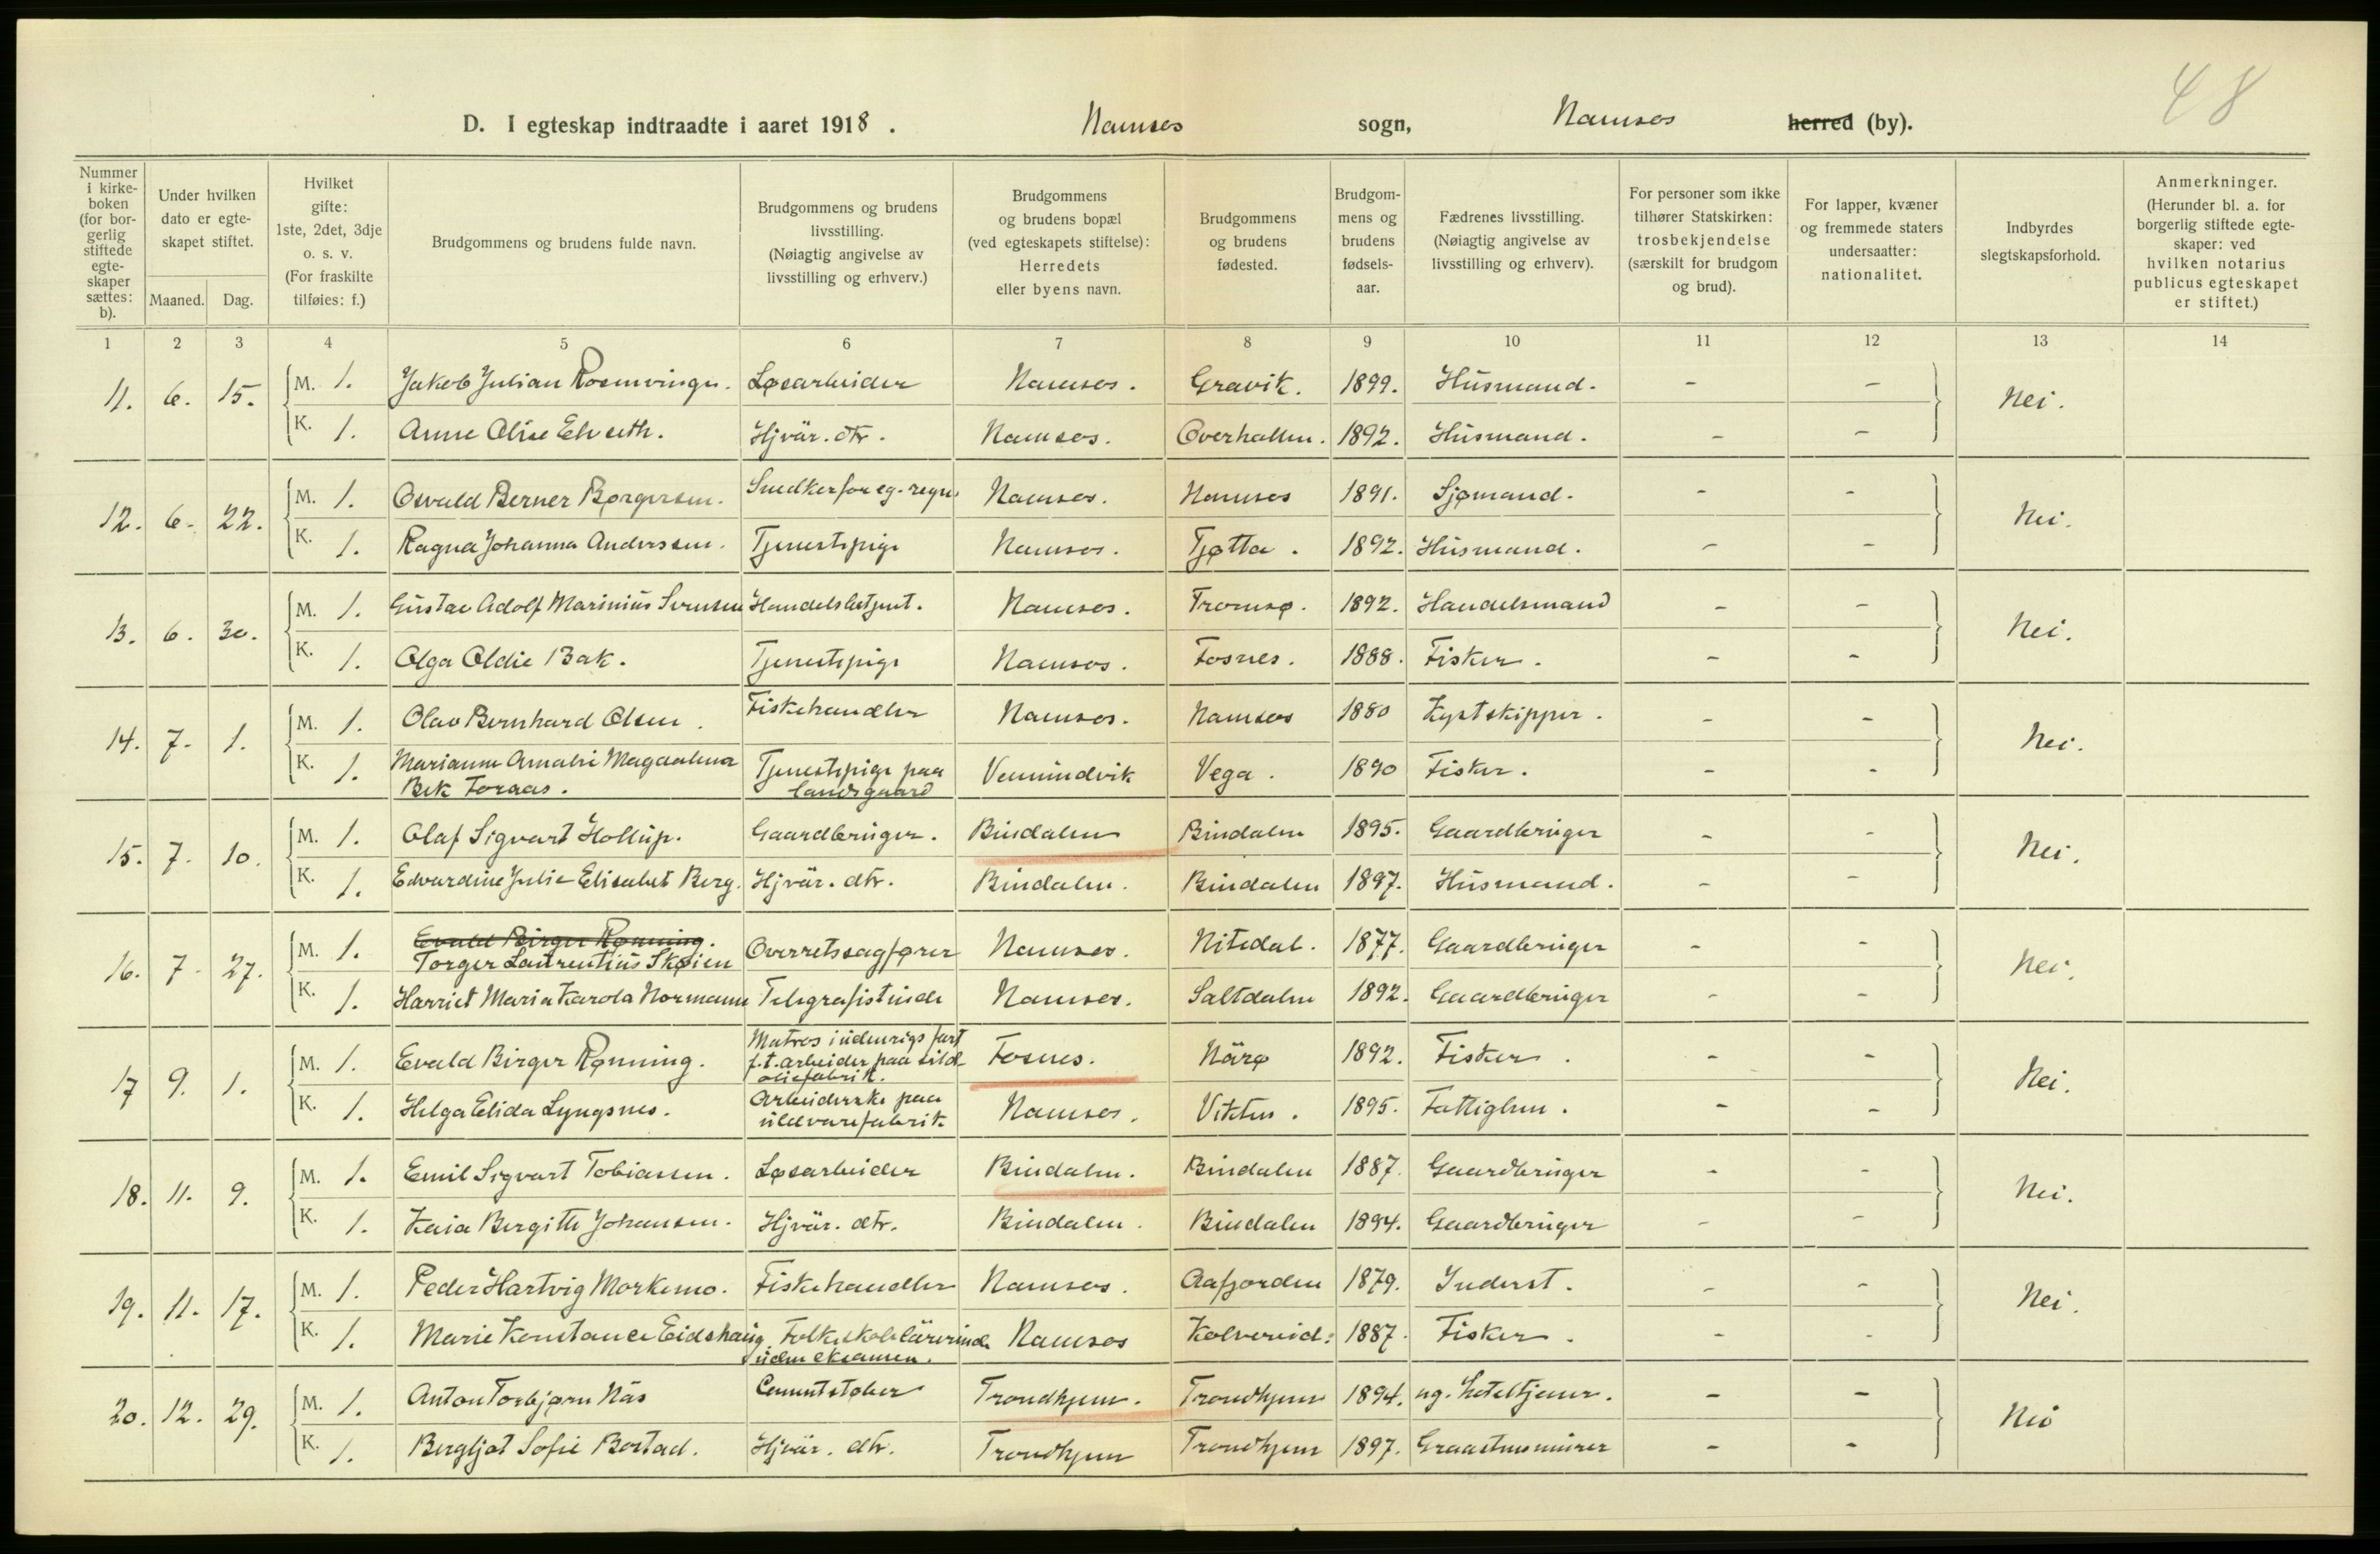 48
D. I egteskap indtraadte i aaret 1918. Namsos sogn, Namsos herred (by).
Nummer i kirkeboken (for borgerlig stiftede egteskaper sættes: b).
Under hvilken dato er egteskapet stiftet.
Maaned. Dag.
Hvilket gifte: 1ste, 2det, 3dje o. s. v. (For fraskilte tilføies: f.)
Brudgommens og brudens fulde navn.
Brudgommens og brudens livsstilling. (Nøiagtig angivelse av livsstilling og erhverv.)
Brudgommens og brudens bopæl (ved egteskapets stiftelse): Herredets eller byens navn.
Brudgommens og brudens fødested.
Brudgommens og brudens fødselsaar.
Fædrenes livsstilling. (Nøiagtig angivelse av livsstilling og erhverv).
For personer som ikke tilhører Statskirken: trosbekjendelse (særskilt for brudgom og brud).
For lapper, kvæner og fremmede staters undersaatter: nationalitet.
Indbyrdes slegtskapsforhold.
Anmerkninger. (Herunder bl. a. for borgerlig stiftede egteskaper: ved hvilken notarius publicus egteskapet er stiftet.)
1 2 3 4 5 6 7 8 9 10 11 12 13 14
11. 6. 15. M. 1. Jakob Julian Rosenvinge. Løsarbeider Namsos. Gravik. 1899. Husmand. - - Nei.
K. 1. Anne Olise Elvseth. Hjvär. dtr. Namsos. Overhallen. 1892. Husmand. - -
12. 6. 22. M. 1. Osvald Berner Børgersen. Snedker for eg. regn. Namsos. Namsos 1891. Sjømand. - - Nei.
K. 1. Ragna Johanna Anderssen. Tjenestepige Namsos. Tjøtta. 1892. Husmand. - -
13. 6. 30. M. 1. Gustav Adolf Marinius Svensen Handelsbetjent. Namsos. Tromsø. 1892. Handelsmand - - Nei.
K. 1. Olga Oldie Bak. Tjenestepige Namsos. Fosnes. 1888. Fisker. - -
14. 7. 1. M. 1. Olav Bernhard Olsen. Fiskehandler Namsos. Namsos 1880 Kystskipper. - - Nei.
K. 1. Marianne Amalie Magdalena Bek Foraas. Tjenestepige paa landsgaard Vemundvik Vega. 1890 Fisker. - -
15. 7. 10. M. 1. Olaf Sigvart Hollup. Gaardbruger. Bindalen Bindalen 1895. Gaardbruger - - Nei.
K. 1. Edvardine Julie Elisabet Berg. Hjvär. dtr. Bindalen. Bindalen 1897. Husmand. - -
16. 7. 27. M. 1. Evald Birger Rønning. Torger Laurentius Skøien Overretssagfører Namsos. Nitedal. 1877. Gaardbruger - - Nei.
K. 1. Harriet Maria Karola Normann Telegrafistinde Namsos. Saltdalen 1892. Gaardbruger - -
17 9. 1. M. 1. Evald Birger Rønning. Matros i udenrigs fart f.t. arbeider paa sildoliefabrik. Fosnes. Närø 1892. Fisker. - - Nei.
K. 1. Helga Elida Lyngsnes. Arbeiderske paa uldvarefabrik Namsos. Vikten. 1895. Fattiglem. - -
18. 11. 9. M. 1. Emil Sigvart Tobiassen. Løsarbeider Bindalen. Bindalen 1887. Gaardbruger - - Nei.
K. 1. Kaia Bergitte Johansen. Hjvär. dtr. Bindalen. Bindalen 1894. Gaardbruger - -
19. 11. 17. M. 1. Peder Hartvig Morkemo. Fiskehandler Namsos. Aafjorden 1879. Inderst. - - Nei.
K. 1. Marie Konstance Eidshaug Folkeskolelärerinde uden eksamen. Namsos Kolvereid. 1887. Fisker. - -
20. 12. 29. M. 1. Anton Torbjørn Näs Cementstøber Trondhjem. Trondhjem 1894. ng. hoteltjener. - - Nei
K. 1. Bergljot Sofie Bostad. Hjvär. dtr. Trondhjem Trondhjem 1897. Graastensmurer - -